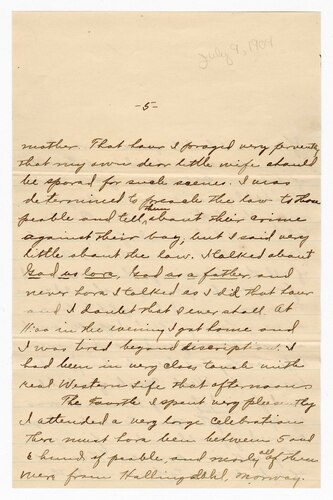 July 9, 1909
-5-
mother. That hour I foraged very perventy
that my own dear little wife should
be spared for such scenes. I was
determined to preach the law to those
people and tell them about their crime
against their boy, but I said very
little about the law. I talked about
God as love, God as a father, and
never hora I talked as I did that hour
and I doubt that I ever shall. At
11:00 in the evening I got home and
I was tired beyond discription. I
had been in very close touch with
real Western Life that afternoon.
The Fourth I spent very pleasently
I attended a very large celebration
There must hora been between 5 and
6 hundr of people and nearly all of them
were from Hallingdahl, Norway.